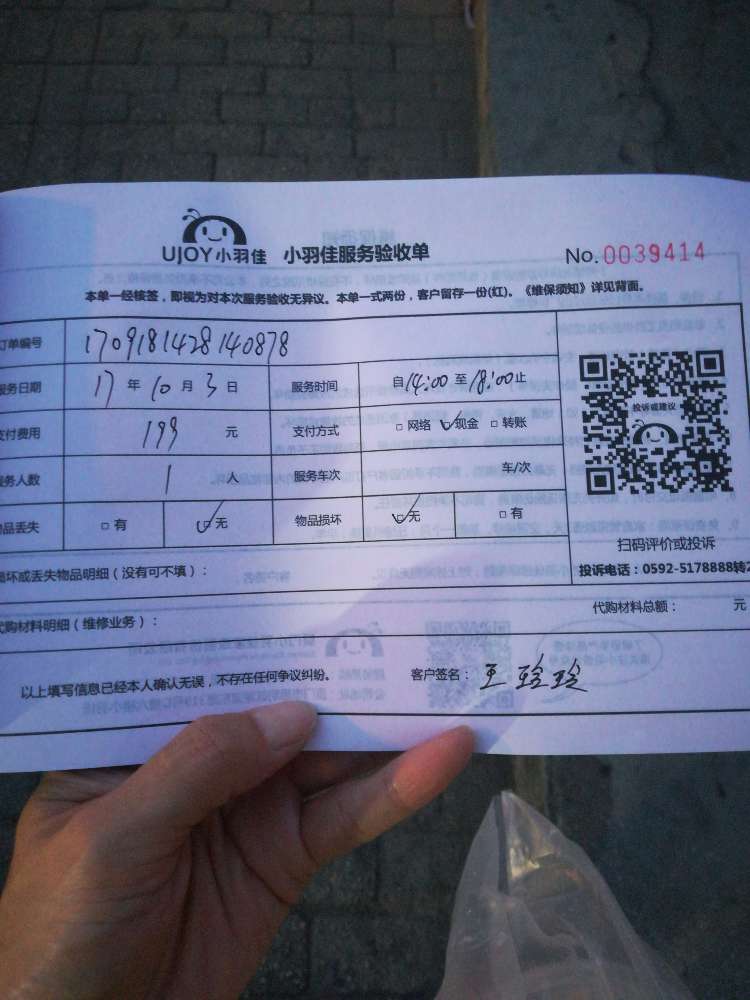 UJOY小羽佳 小羽佳服务验收单 No.0039414
本单一经核签，即视为对本次服务验收无异议。本单一式两份，客户留存一份(红)。《维保须知》详见背面。
订单编号 1709181428140878
服务日期 17 年 10 月 3 日 服务时间 自14:00至18:00止
支付费用 199 元 支付方式 □ 网络 ☑ 现金 □ 转账
投诉或建议
服务人数 1 人 服务车次 车/次
物品丢失 □ 有 ☑ 无 物品损坏 ☑ 无 □ 有
扫码评价或投诉
损坏或丢失物品明细（没有可不填）： 投诉电话：0592-5178888转2
代购材料明细（维修业务）： 代购材料总额： 元
以上填写信息已经本人确认无误，不存在任何争议纠纷。 客户签名：王玲玲